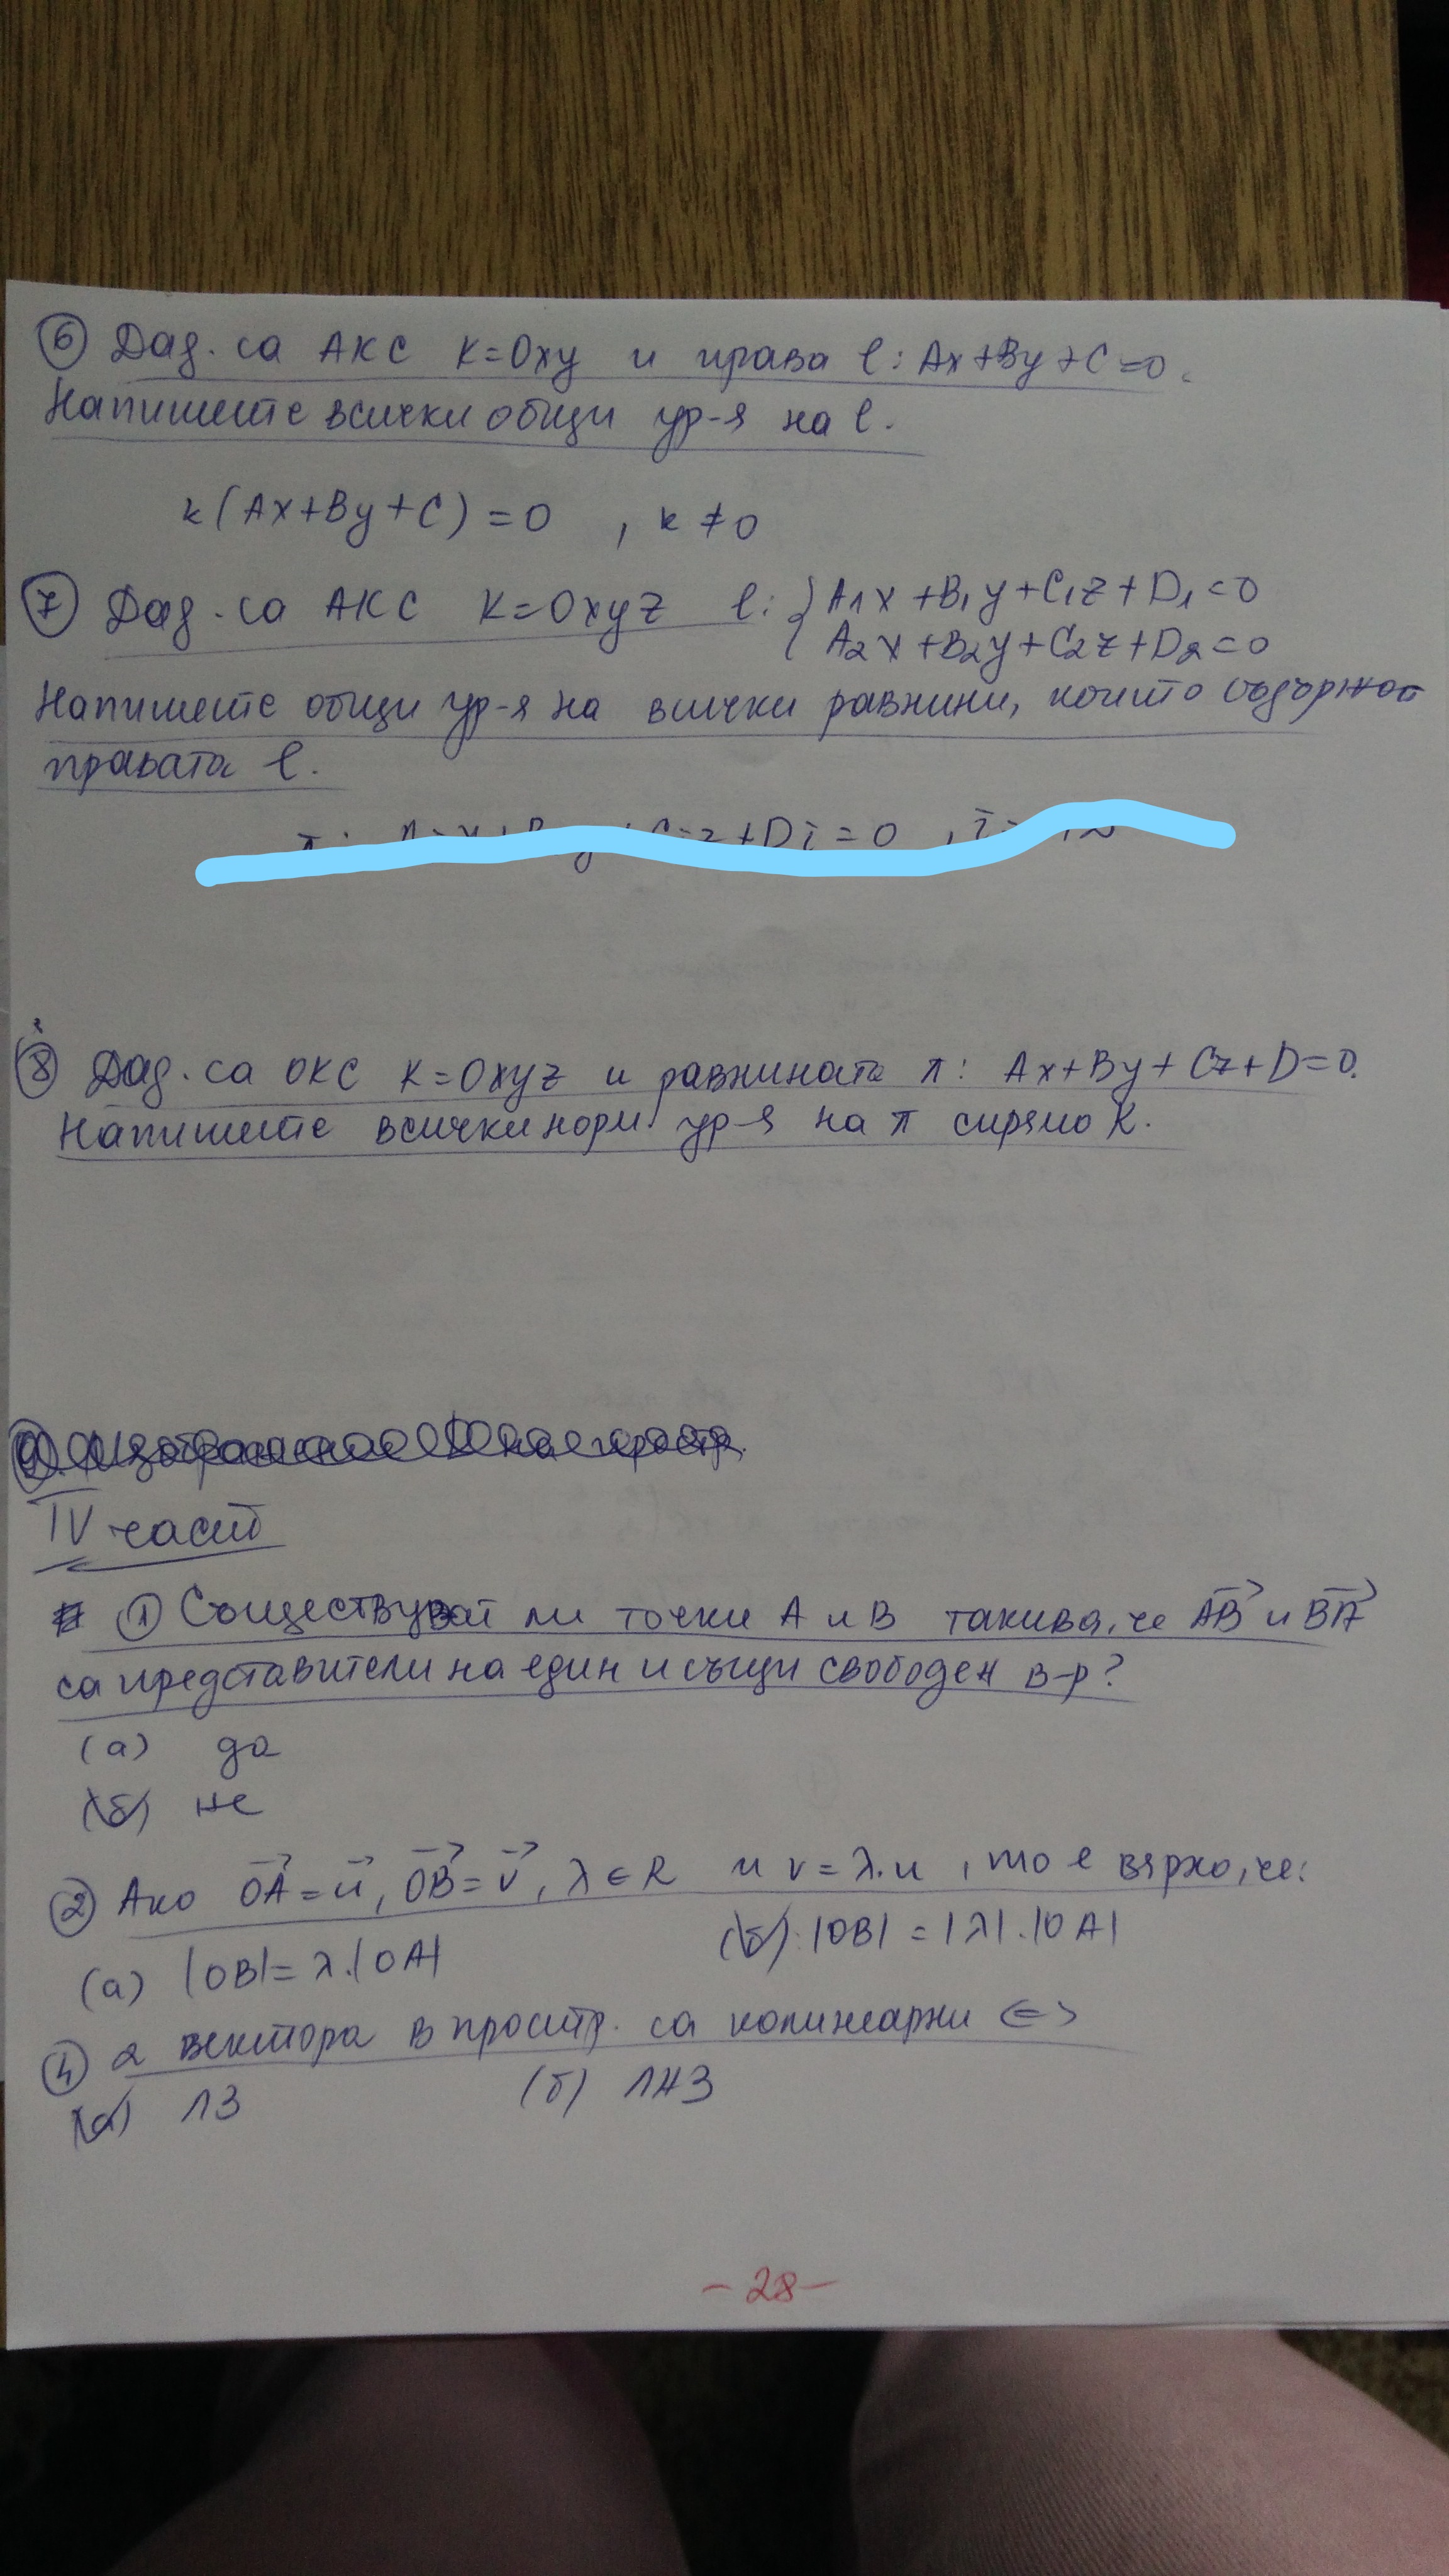 ⑥ Дад. са АКС К=Oxy и права l: Ax+By+C=0.
Напишете всички общи ур-я на l.
k(Ax+By+C)=0 , k≠0
⑦ Дад. са АКС К=Oxyz l: { A₁x+B₁y+C₁z+D₁=0
A₂x+B₂y+C₂z+D₂=0
Напишете общи ур-я на всички равнини, които съдържат
правата l.
⑧ Дад. са ОКС К=Oxyz и равнината π: Ax+By+Cz+D=0.
Напишете всички норм. ур-я на π спрямо К.
IV част
① Съществуват ли точки А и В такива, че AB→ и BA→
са представители на един и същи свободен в-р?
(а) да
(б) не
② Ако OA→=u→, OB→=v→, λ∈R и v=λ.u, то е вярно, че:
(а) |OB|=λ.|OA| (б) |OB|=|λ|.|OA|
④ 2 вектора в простр. са колинеарни <=>
(а) ЛЗ (б) ЛНЗ
-28-